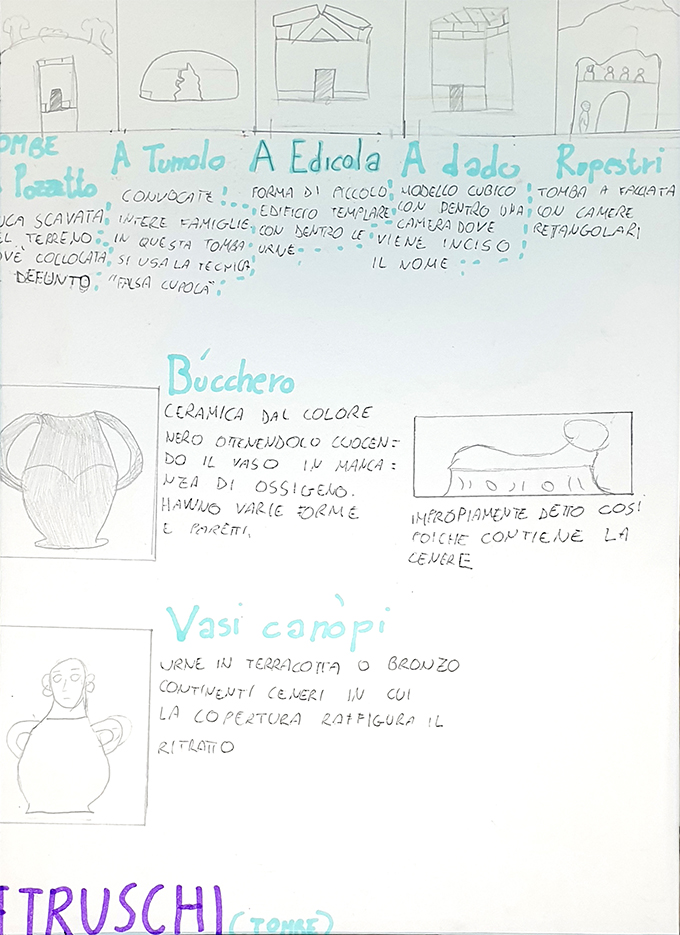 OMBE
Pozzetto
UCA SCAVATA
EL TERRENO
OVÈ COLLOCATA
DEFUNTO
A Tumolo
CONVOCATE
INTERE FAMIGLIE
IN QUESTA TOMBA
SI USA LA TECNICA
"FALSA CUPOLA"
A Edicola
FORMA DI PICCOLO
EDIFICIO TEMPLARE
CON DENTRO LE
URNE
A dado
MODELLO CUBICO
CON DENTRO UNA
CAMERA DOVE
VIENE INCISO
IL NOME
Rupestri
TOMBA A FACCIATA
CON CAMERE
RETANGOLARI
Búcchero
CERAMICA DAL COLORE
NERO OTTENENDOLO CUOCEN=
DO IL VASO IN MANCA=
NZA DI OSSIGENO.
HANNO VARIE FORME
E PARETTI.
IMPROPIAMENTE DETTO COSI
POICHE CONTIENE LA
CENERE
Vasi canòpi
URNE IN TERRACOTTA O BRONZO
CONTINENTI CENERI IN CUI
LA COPERTURA RAFFIGURA IL
RITRATTO
ETRUSCHI (TOMBE)